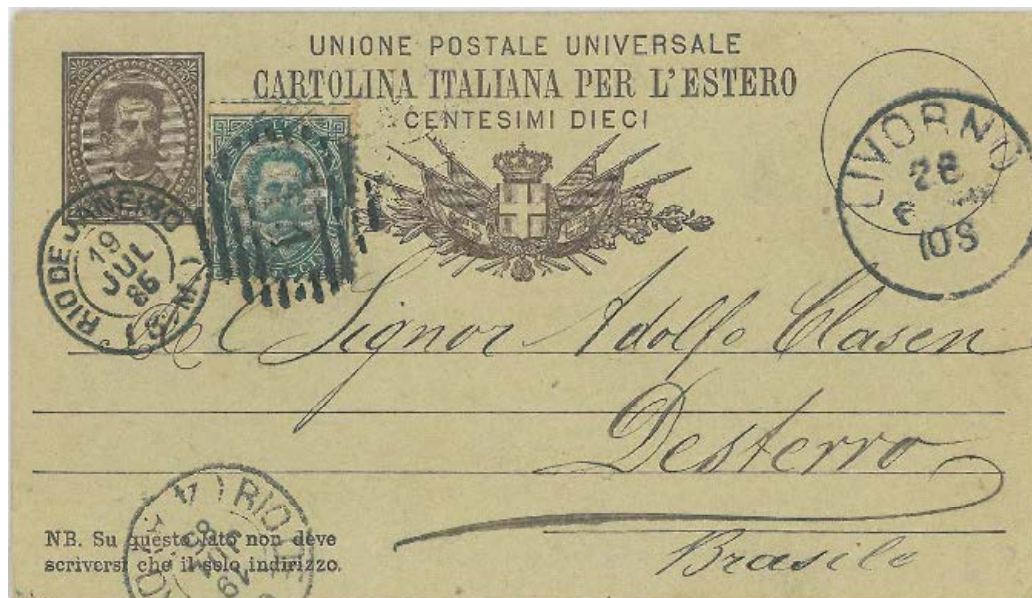 UNIONE POSTALE UNIVERSALE
CARTOLINA ITALIANA PER L'ESTERO
CENTESIMI DIECI
LIVORNO
28
10 S
RIO DE JANEIRO
19
JUL
86
Signor Adolfo Clasen
Desterro
Brasile
NB. Su questo lato non deve
scriversi che il solo indirizzo.
RIO
19